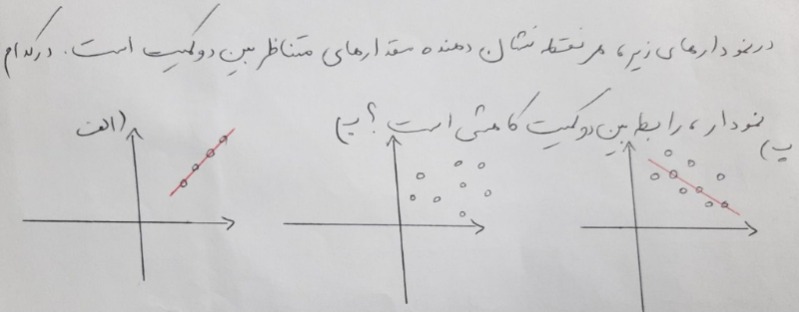 در نمودارهای زیر، هر نقطه نشان دهنده مقدارهای متناظر بین دو کمیت است. در کدام
نمودار، رابطه بین دو کمیت کاهشی است؟
الف)
ب)
پ)